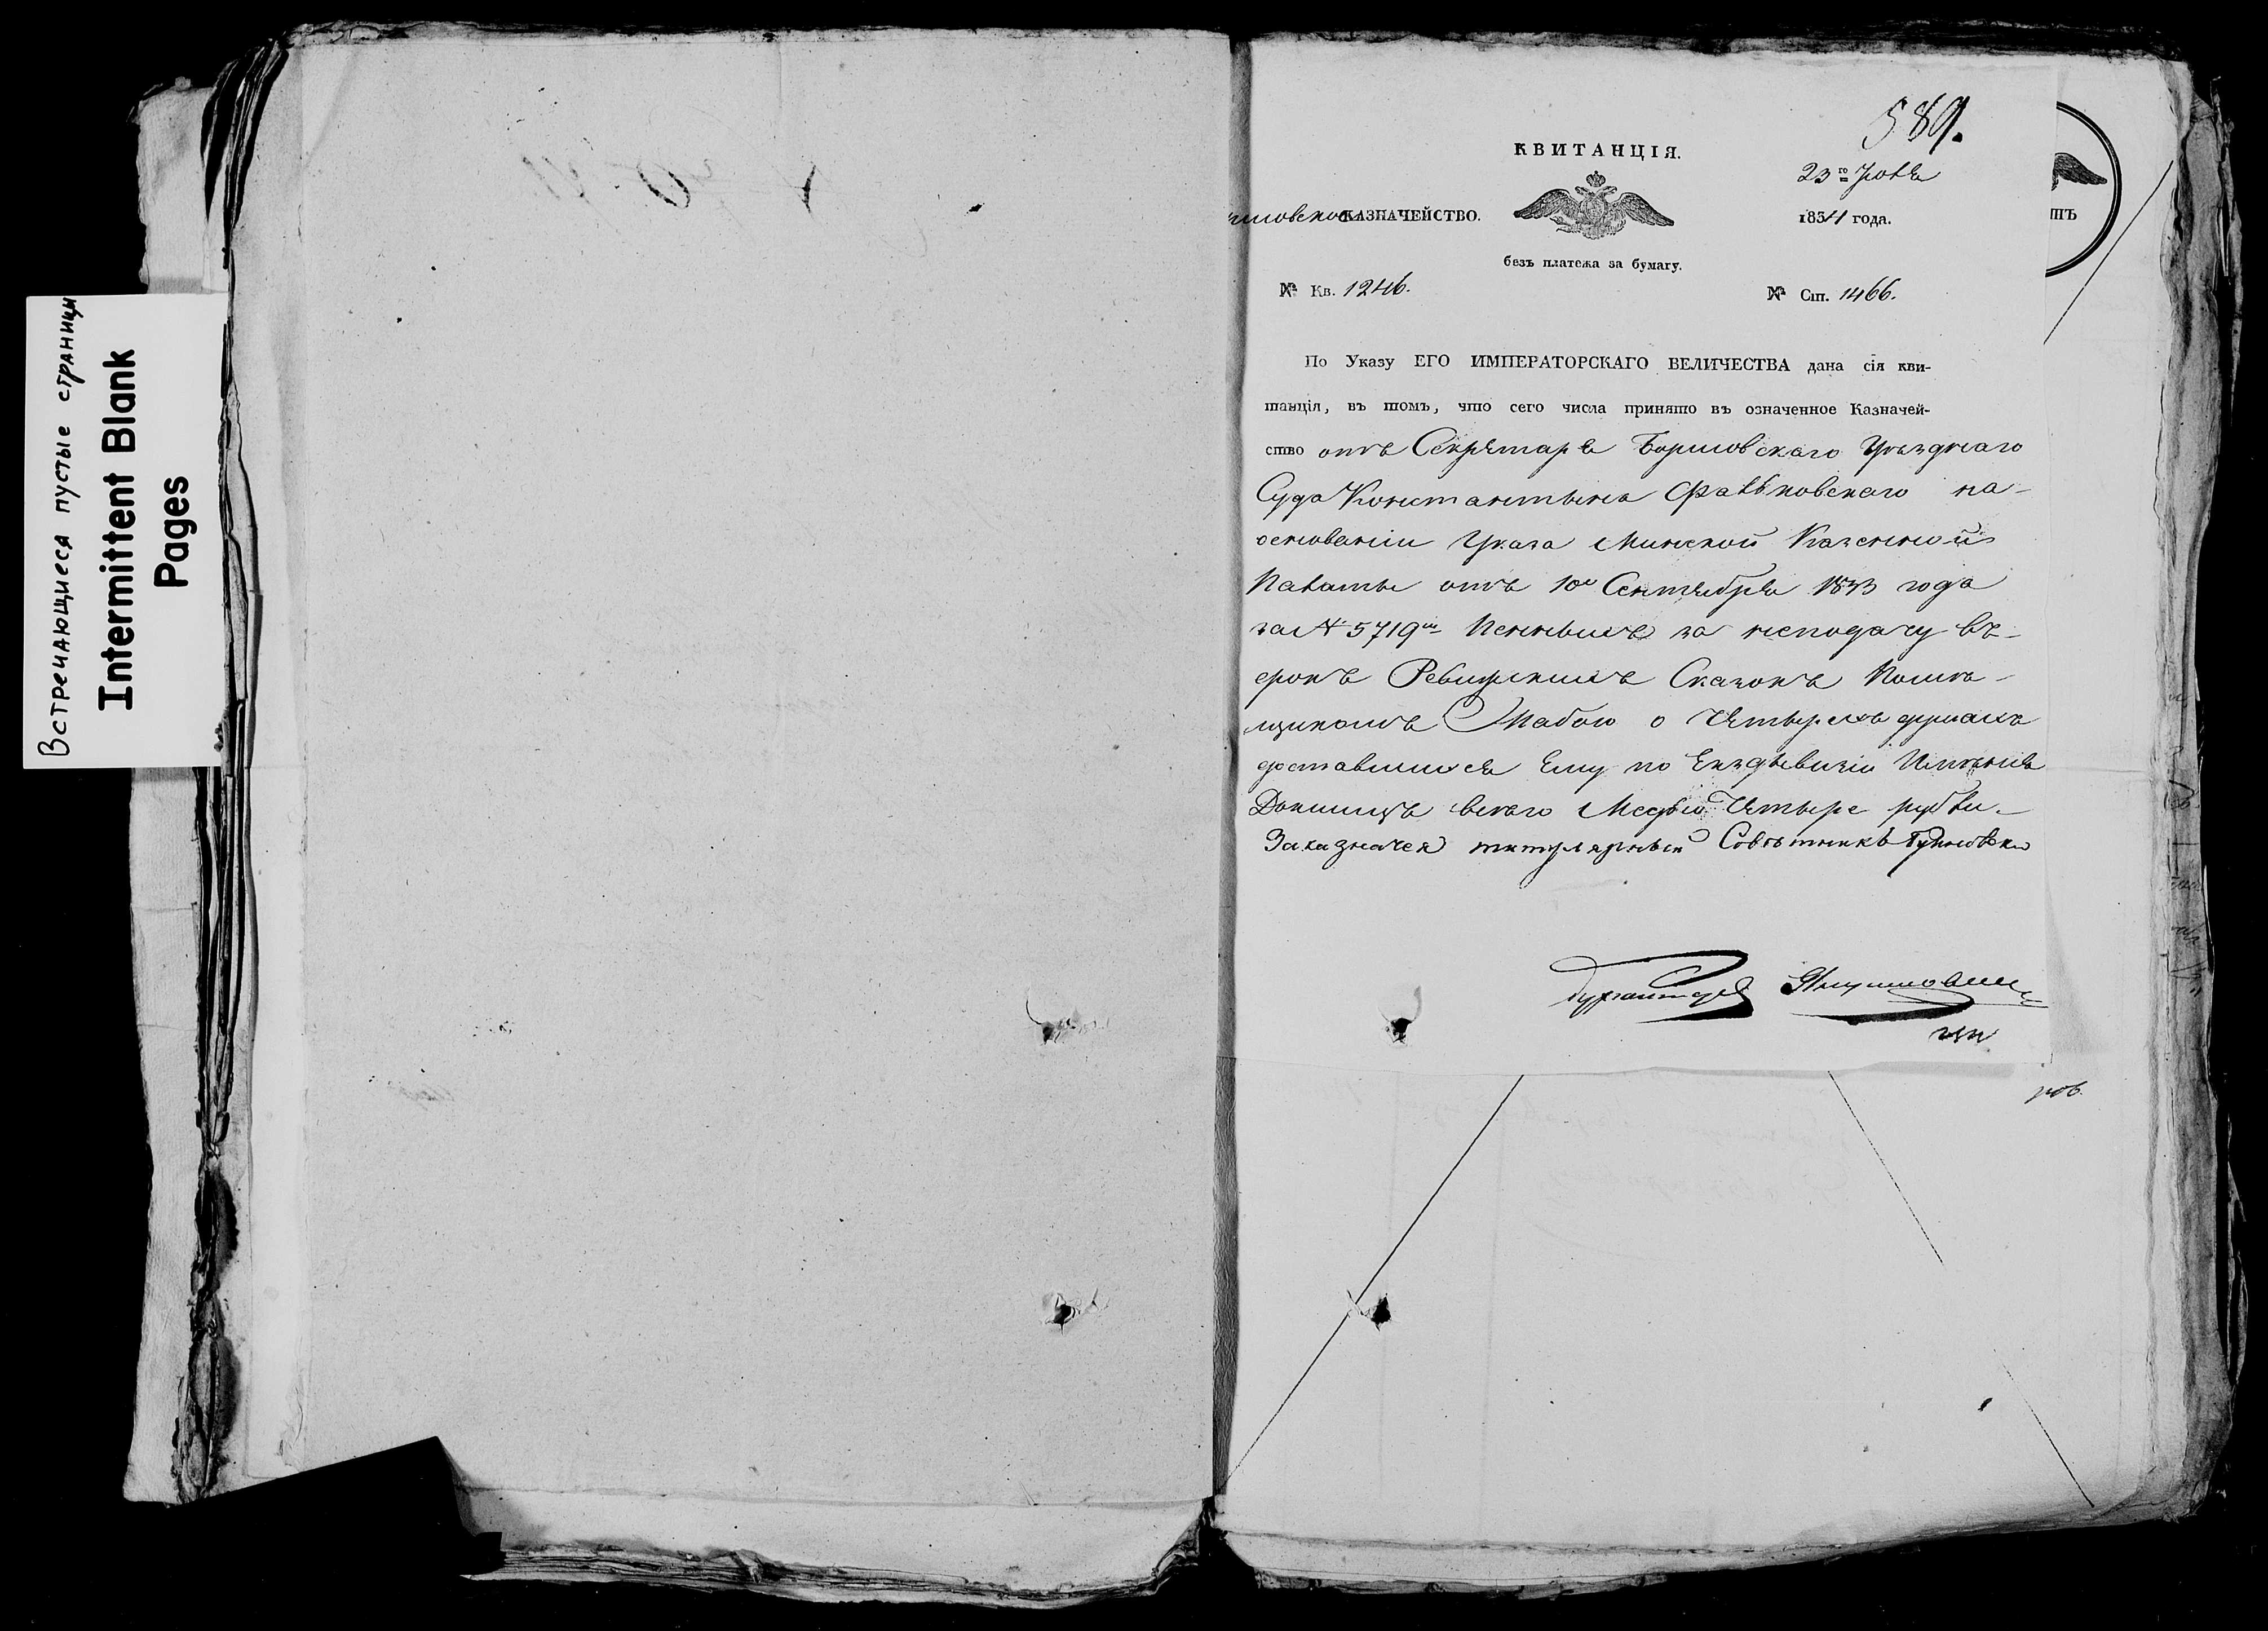 Встречающиеся пустые страницы
Intermittent Blank
Pages
589.
КВИТАНЦІЯ.
23го Іюля
КАЗНАЧЕЙСТВО.
1834 года.
безъ платежа за бумагу.
№ Кв. 1246.
№ Сіп. 1466.
По Указу ЕГО ИМПЕРАТОРСКАГО ВЕЛИЧЕСТВА дана сія кви-
танція, въ томъ, что сего числа принято въ означенное Казначей-
ство отъ Секретаря Борисовскаго Уѣзднаго
Суда Константина Фальковскаго на-
основаніи Указа Минской Казенной
Палаты отъ 10го Сентября 1833 года
за № 5719м за неподачу въ-
срокъ Ревизскихъ Сказокъ Помѣ-
щикомъ о Четырехъ душахъ
доставшихся Ему по Имѣнія
Докшицъ всего Четыре рубли.
Заказначея титулярный Совѣтникъ
Бухгалтеръ